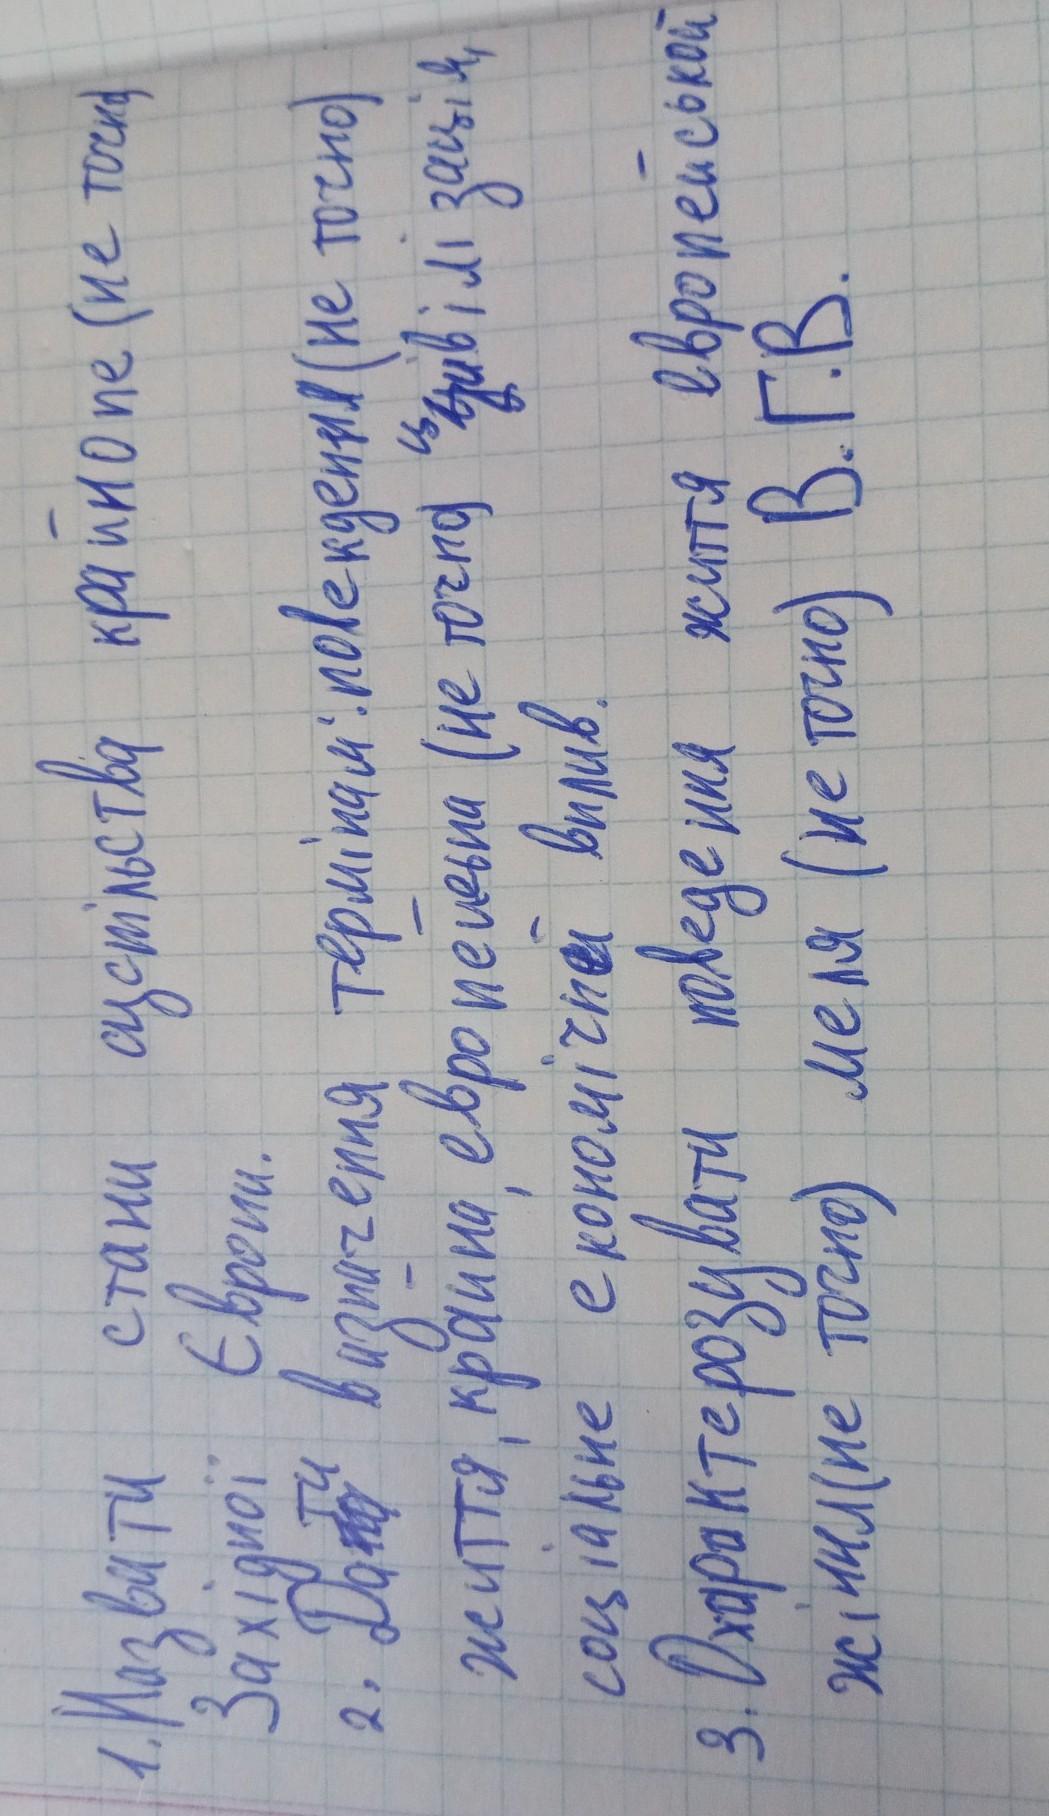 1. Назвати стани суспільства крайнопе (не точно)
Західної Європи.
2. Дати визначення термінам: повекдення (не точно)
життя, країна, европейська (не точно) цивілізація,
соціальне економічней вплив.
3. Охарактерозувати поведения життя европейськой
жінил (не точно) меля (не точно) В.Г.В.